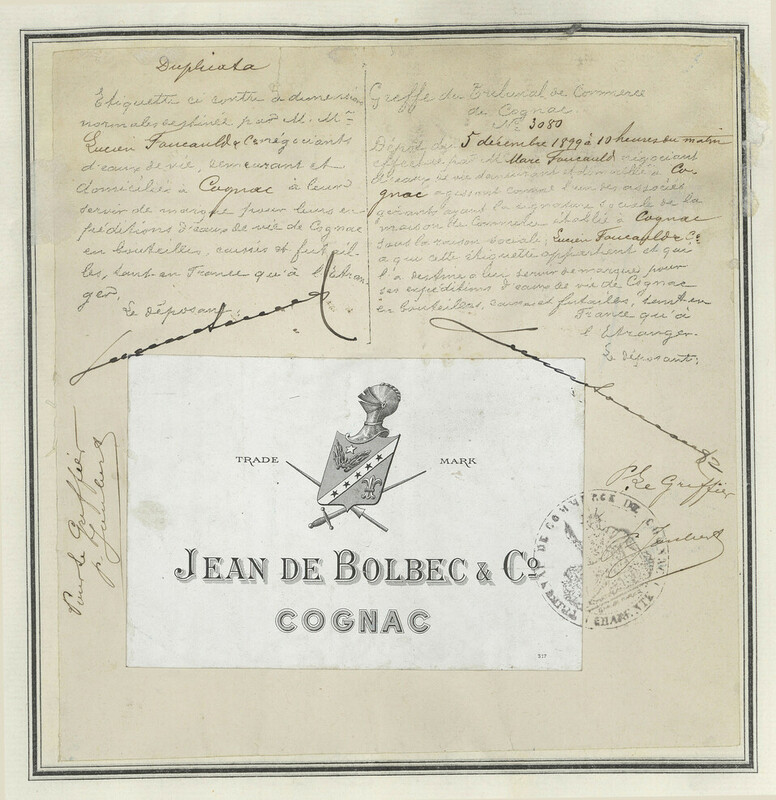 Duplicata
Etiquette ci contre à dimension
normales destinée par M. Mrs
Lucien Foucauld & Co négociants
d'eaux de vie, demeurant et
domiciliés à Cognac à leur
servir de marque pour leurs ex-
péditions d'eaux de vie de Cognac
en bouteilles, caisses et futail-
les, tant en France qu'à l'étran-
ger.
Le déposant:
Greffe du Tribunal de Commerce
de Cognac
No 3080
Dépôt du 5 décembre 1899 à 10 heures du matin
effectué par M. Marc Foucauld négociant
d'eaux de vie demeurant et domicilié à Co-
gnac agissant comme l'un des associés
gérants ayant la signature sociale de la
maison de Commerce établie à Cognac
sous la raison sociale; Lucien Foucauld & Co
a que cette étiquette appartient et qu'il
l'a destine à leur servir de marques pour
ses expéditions d'eaux de vie de Cognac
en bouteilles, caisses et futailles, tant en
France qu'à
l'Etranger.
Le déposant:
Pour Le Greffier
P. Le Greffier
TRADE MARK
JEAN DE BOLBEC & Co
COGNAC
517
DE COMMERCE DE COGNAC
CHARENTE